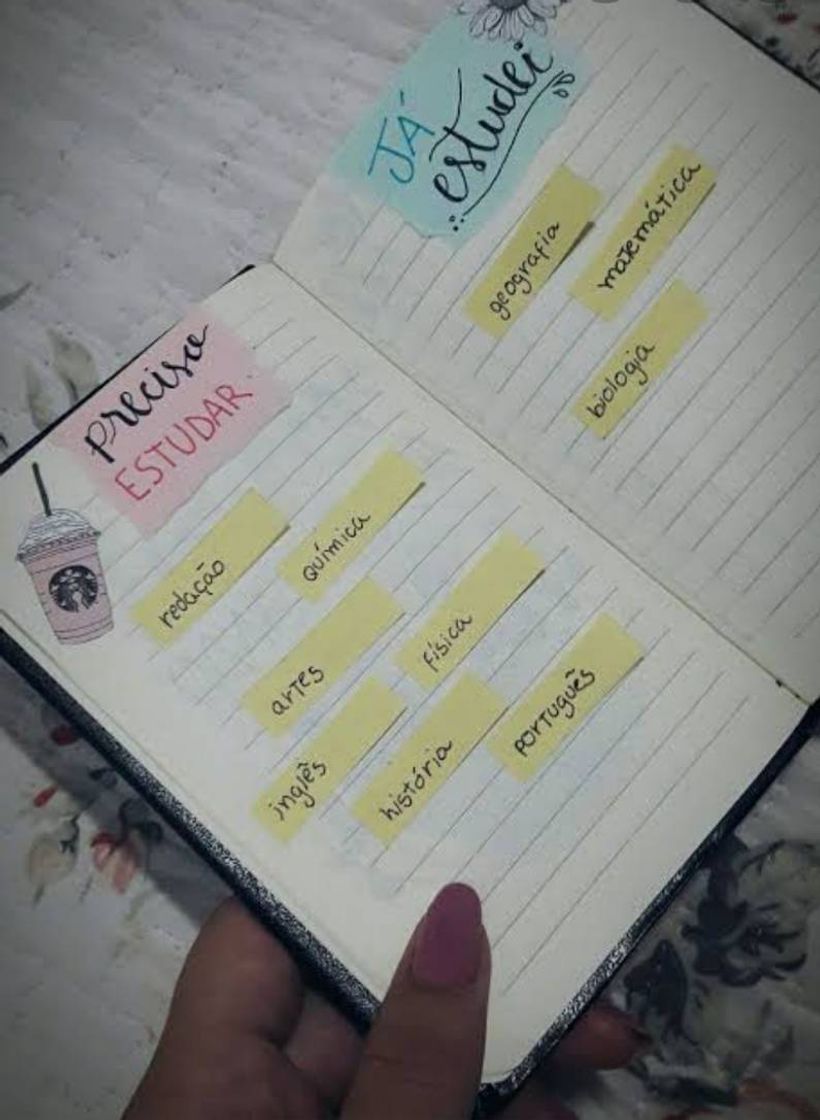 preciso
ESTUDAR
redação
química
artes
física
inglês
história
português
JÁ
estudei
geografia
matemática
biologia